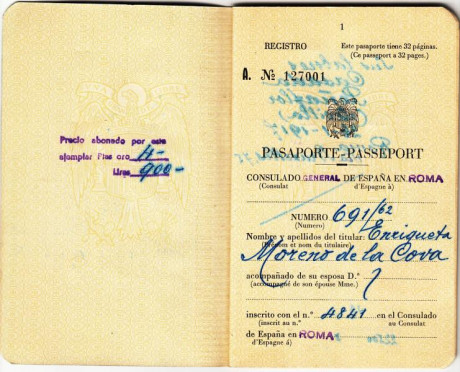 Precio abonado por este
ejemplar Ptas oro 4-
Liras 900-
1
REGISTRO
Este pasaporte tiene 32 páginas.
(Ce passeport a 32 pages.)
A. Nº 127001
PASAPORTE-PASSEPORT
CONSULADO GENERAL DE ESPAÑA EN ROMA
(Consulat d'Espagne à)
NUMERO 691/62
(Numero)
Nombre y apellidos del titular: Enriqueta
(Prénom et nom du titulaire)
Moreno de la Cova
acompañado de su esposa D.ª
(accompagné de son épouse Mme.)
inscrito con el n.º 4841 en el Consulado
(inscrit au n.º au Consulat
de España en ROMA
d'Espagne à)